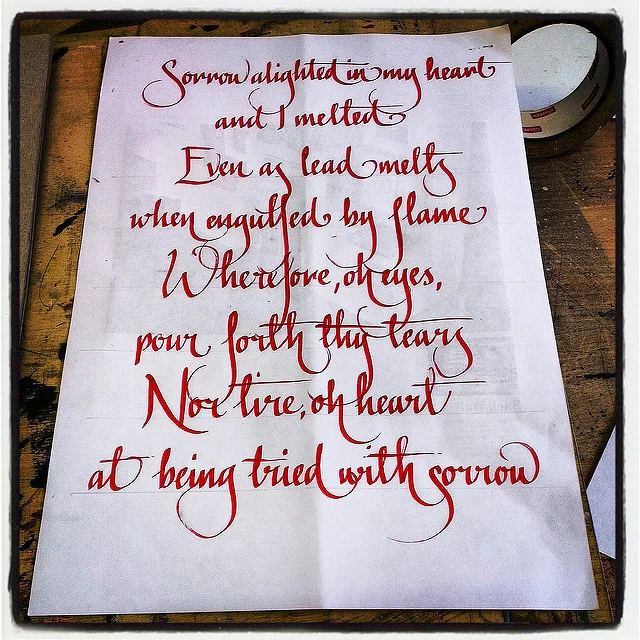 Sorrow alighted in my heart
and I melted
Even as lead melts
when engulfed by flame
Wherefore, oh eyes,
pour forth thy tears
Nor tire, oh heart
at being tried with sorrow